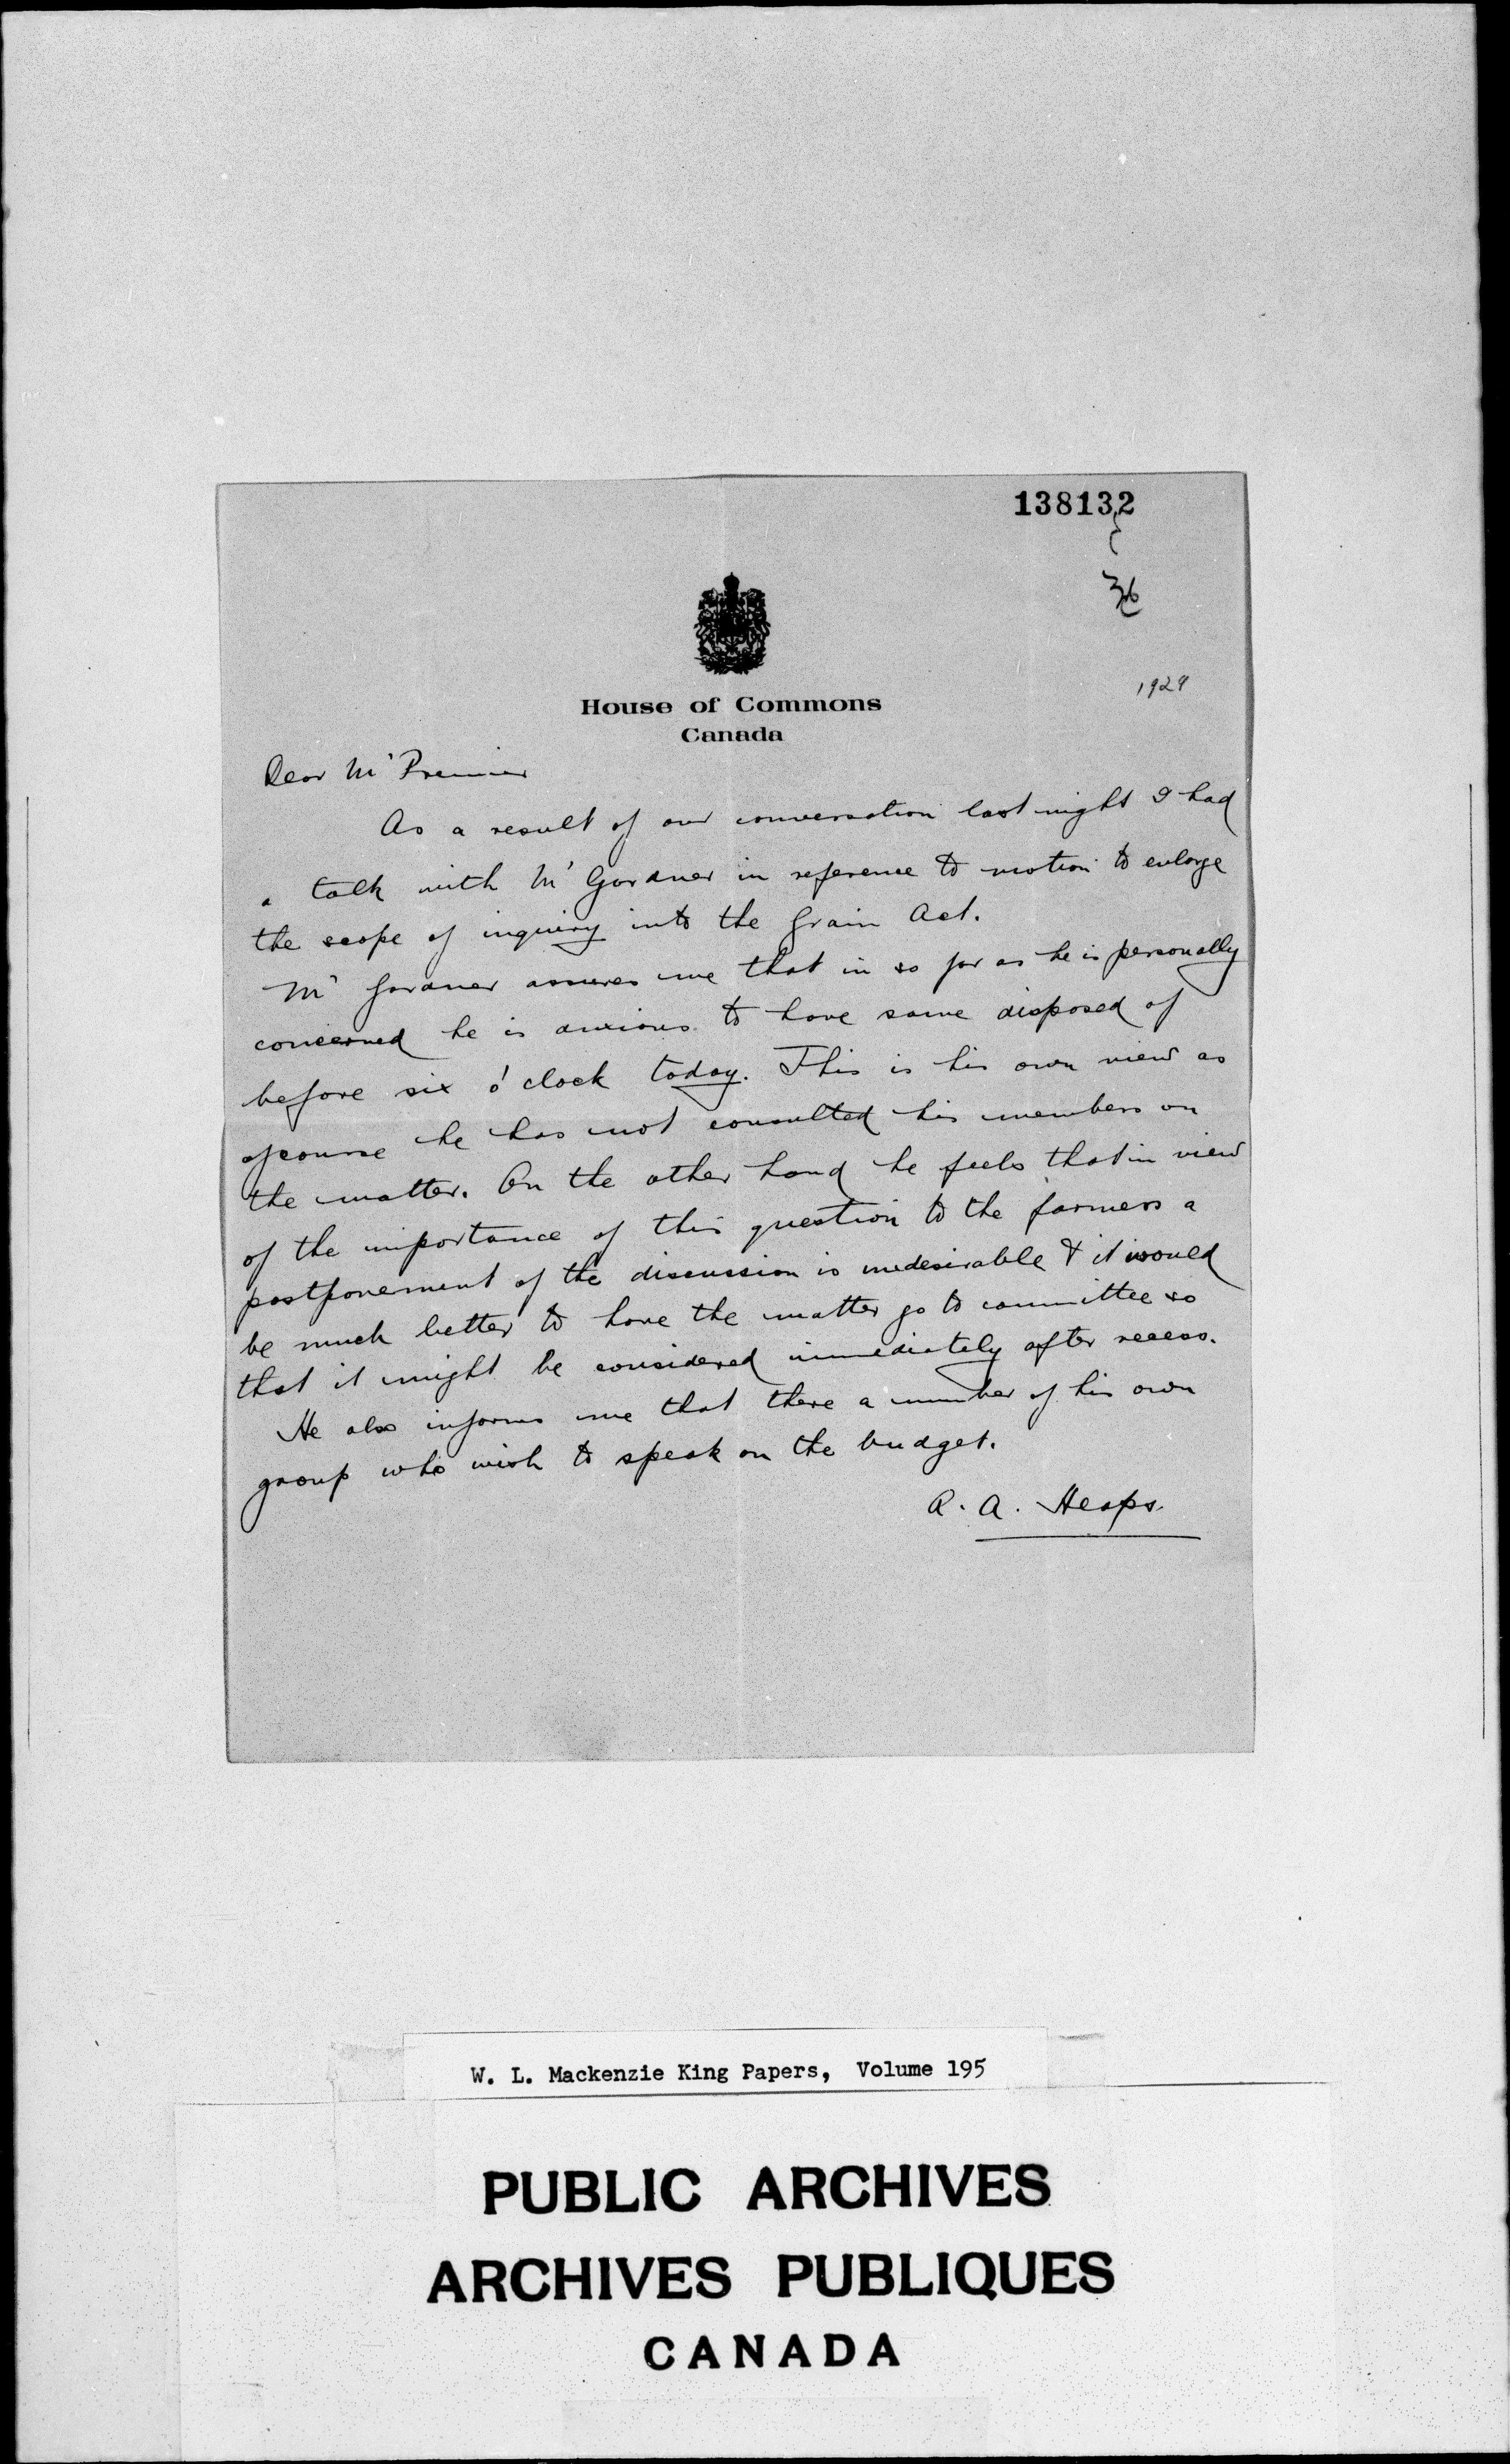 138132
36
1929
House of Commons
Canada
Dear Mr Premier
As a result of our conversation last night I had
a talk with Mr Gardner in reference to motion to enlarge
the scope of inquiry into the Grain Act.
Mr Gardner assures me that in so far as he is personally
concerned he is anxious to have same disposed of
before six o'clock today. This is his own view as
ofcourse he has not consulted his members on
the matter. On the other hand he feels that in view
of the importance of this question to the farmers a
postponement of the discussion is undesirable & it would
be much better to have the matter go to committee so
that it might be considered immediately after recess.
He also informs me that there a number of his own
group who wish to speak on the budget.
A. A. Heaps.
W. L. Mackenzie King Papers, Volume 195
PUBLIC ARCHIVES
ARCHIVES PUBLIQUES
CANADA